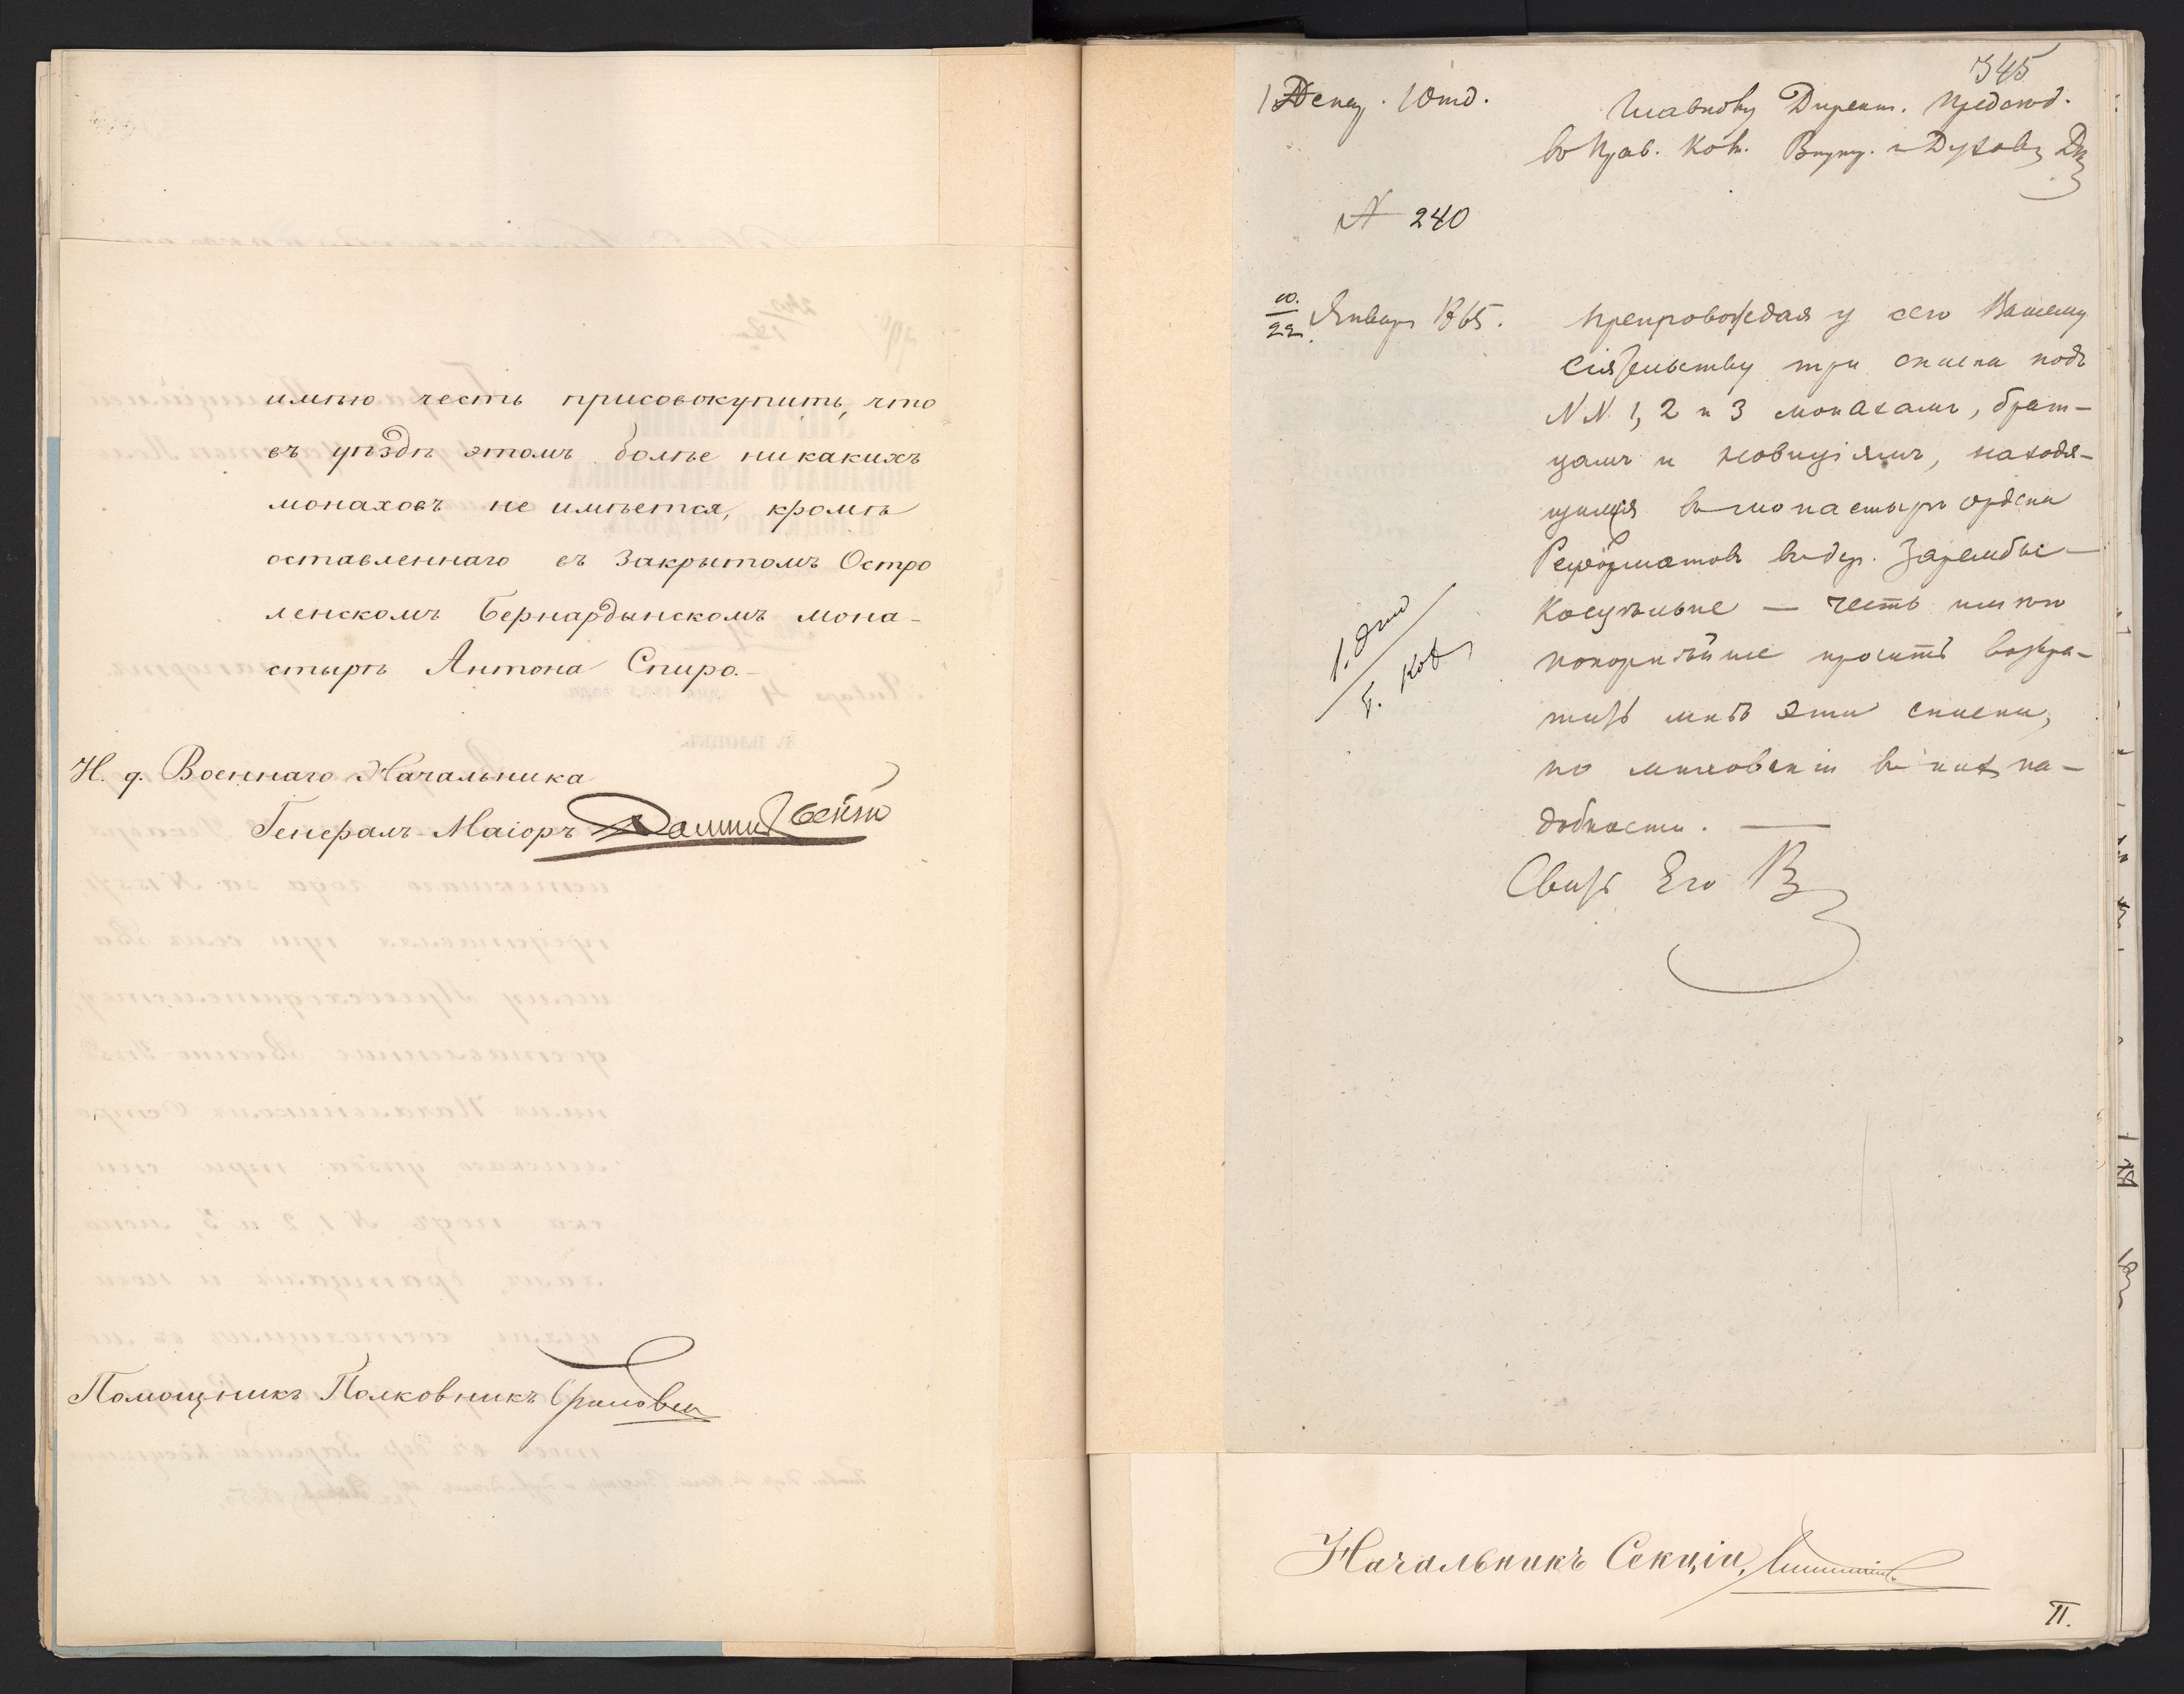 имѣю честь присовокупить, что
въ уѣздѣ этомъ болѣе никакихъ
монаховъ не имѣется, кромѣ
оставленнаго въ Закрытомъ Остро
ленскомъ Бернардынскомъ мона-
стырѣ Антона Спиро.-
И. д. Военнаго Начальника
Генералъ-Маіоръ
Помощникъ Полковникъ
345
1 Отд.
Главному Директ. Предсѣд.
въ Прав. Ком. Внутр. и Духовн Дѣ
N 240
10.
22. Января 1865.
Препровождая у сего Вашему
Сіятельству три списка подъ
N N. 1, 2 и 3 монахамъ, брат-
цамъ и новиціямъ, находя-
щимся въ монастырѣ ордена
Реформатовъ въ дер. Зарембы-
Косцѣльне — честь имѣю
покорнѣйше просить возвра-
тить мнѣ эти списки,
по минованіи въ нихъ на-
добности. —
Свиты Его В
Начальникъ Секціи,
II.